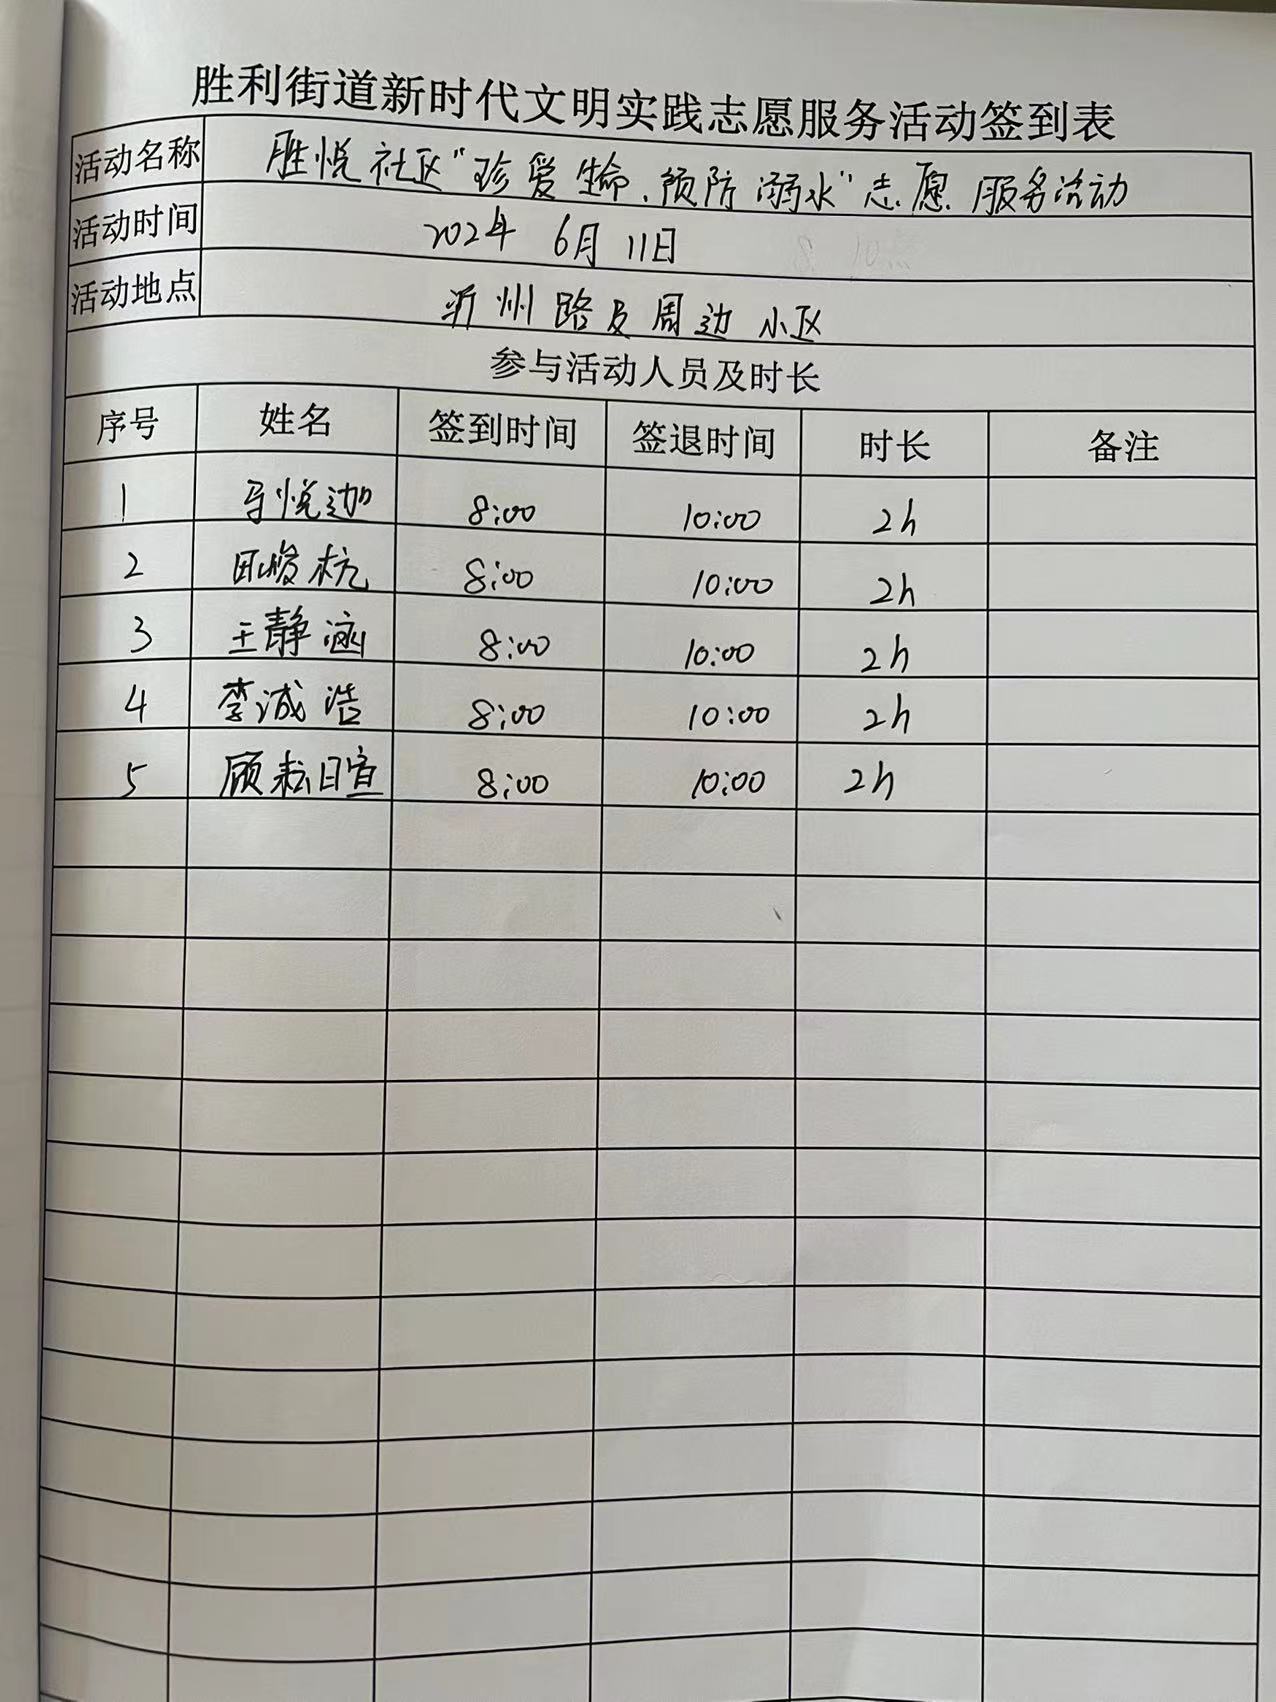 胜利街道新时代文明实践志愿服务活动签到表
活动名称 胜悦社区“珍爱生命、预防溺水”志愿服务活动
活动时间 2024年 6月 11日
活动地点 沂州路及周边小区
参与活动人员及时长
序号 姓名 签到时间 签退时间 时长 备注
1 马悦迦 8:00 10:00 2h
2 田峻杭 8:00 10:00 2h
3 王静涵 8:00 10:00 2h
4 李诚浩 8:00 10:00 2h
5 顾耘暄 8:00 10:00 2h